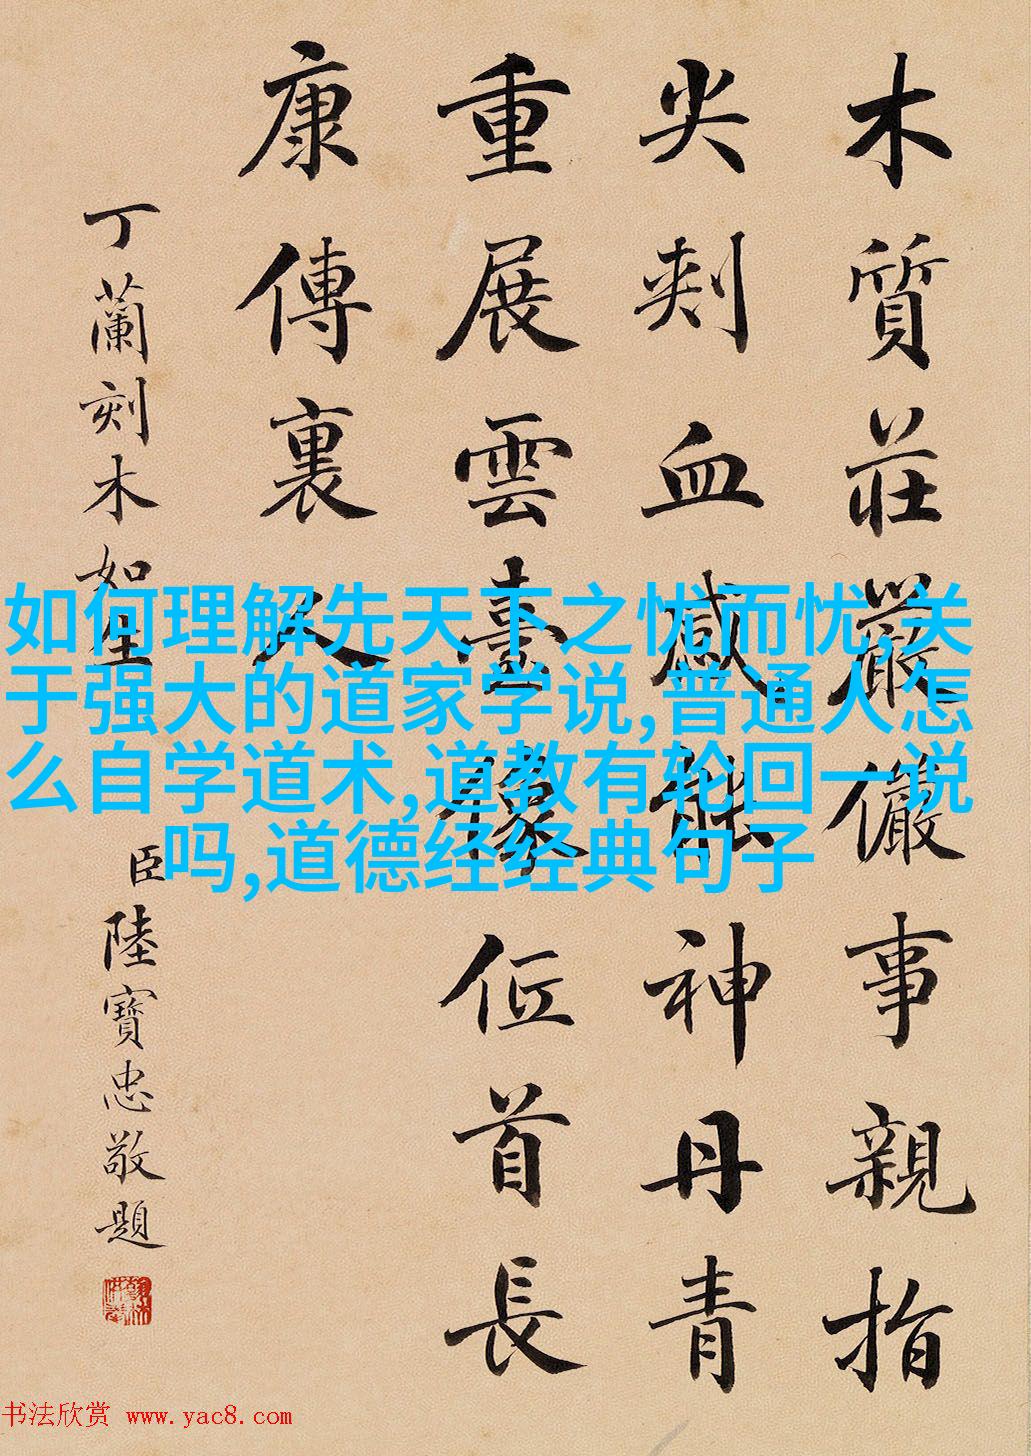 木質莊嚴儼事親指
尖刾血感能神丹青
重展雲臺像低首長
康傳裏人
丁蘭刻木如生
臣陸寶忠敬題
如何理解先天下之忧而忧,关
于强大的道家学说,普通人怎
么自学道术,道教有轮回一说
吗,道德经经典句子
书法欣赏 www.yac8.com